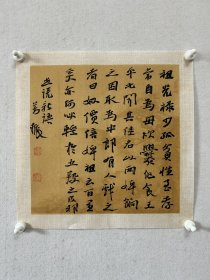 祖光祿少孤貧性至孝
常自為母炊爨作食王
平北聞其佳名以兩婢餉
之因取為中郎有人戲之
者曰奴價倍婢祖云百里
奚亦何必輕於五羖之皮邪
世說新語